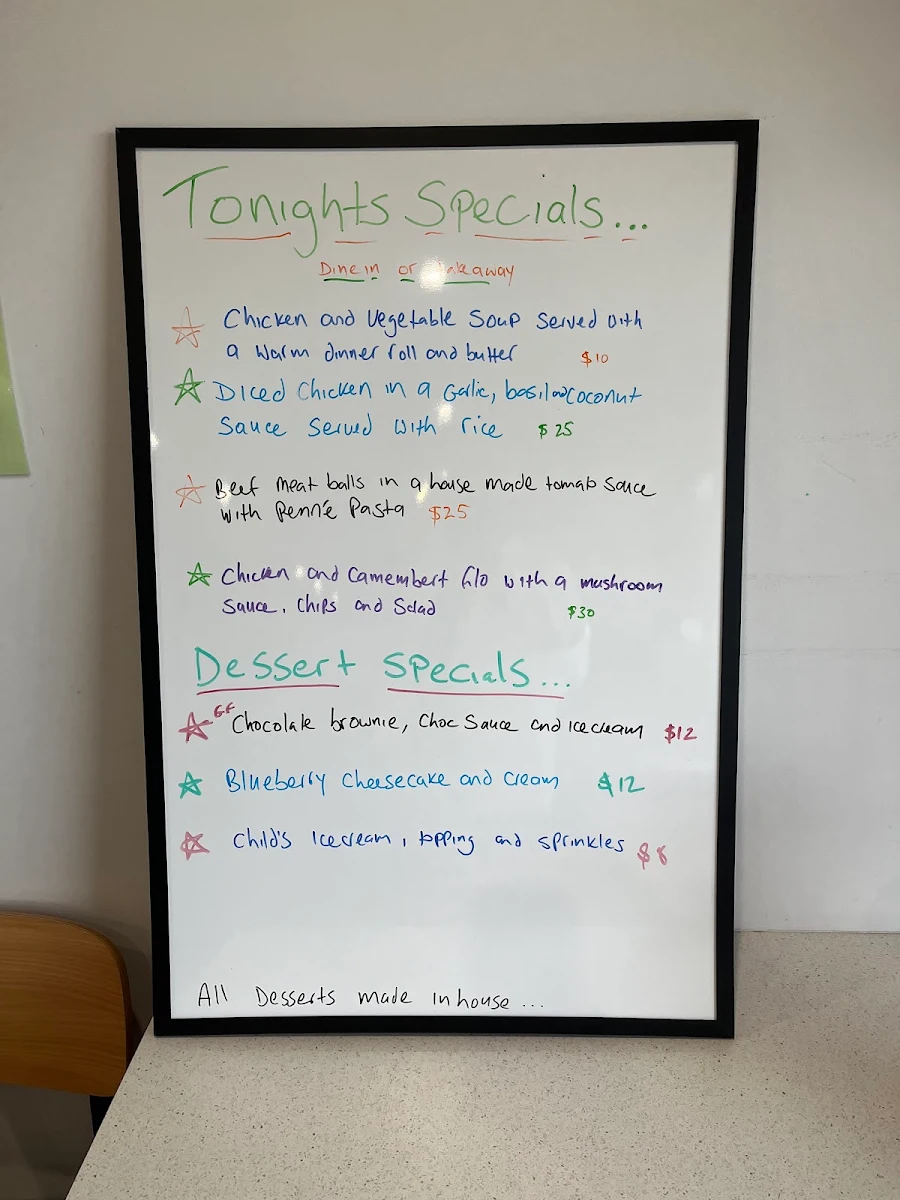 Tonights Specials...
Dine in or Takeaway
Chicken and Vegetable Soup served with
a warm dinner roll and butter $10
Diced Chicken in a Garlic, basil and coconut
Sauce served with rice $25
Beef meat balls in a house made tomato sauce
with Penne Pasta $25
Chicken and Camembert filo with a mushroom
Sauce, Chips and Salad $30
Dessert Specials...
GF Chocolate brownie, Choc Sauce and icecream $12
Blueberry Cheesecake and Cream $12
Child's Icecream, topping and sprinkles $8
All Desserts made inhouse...